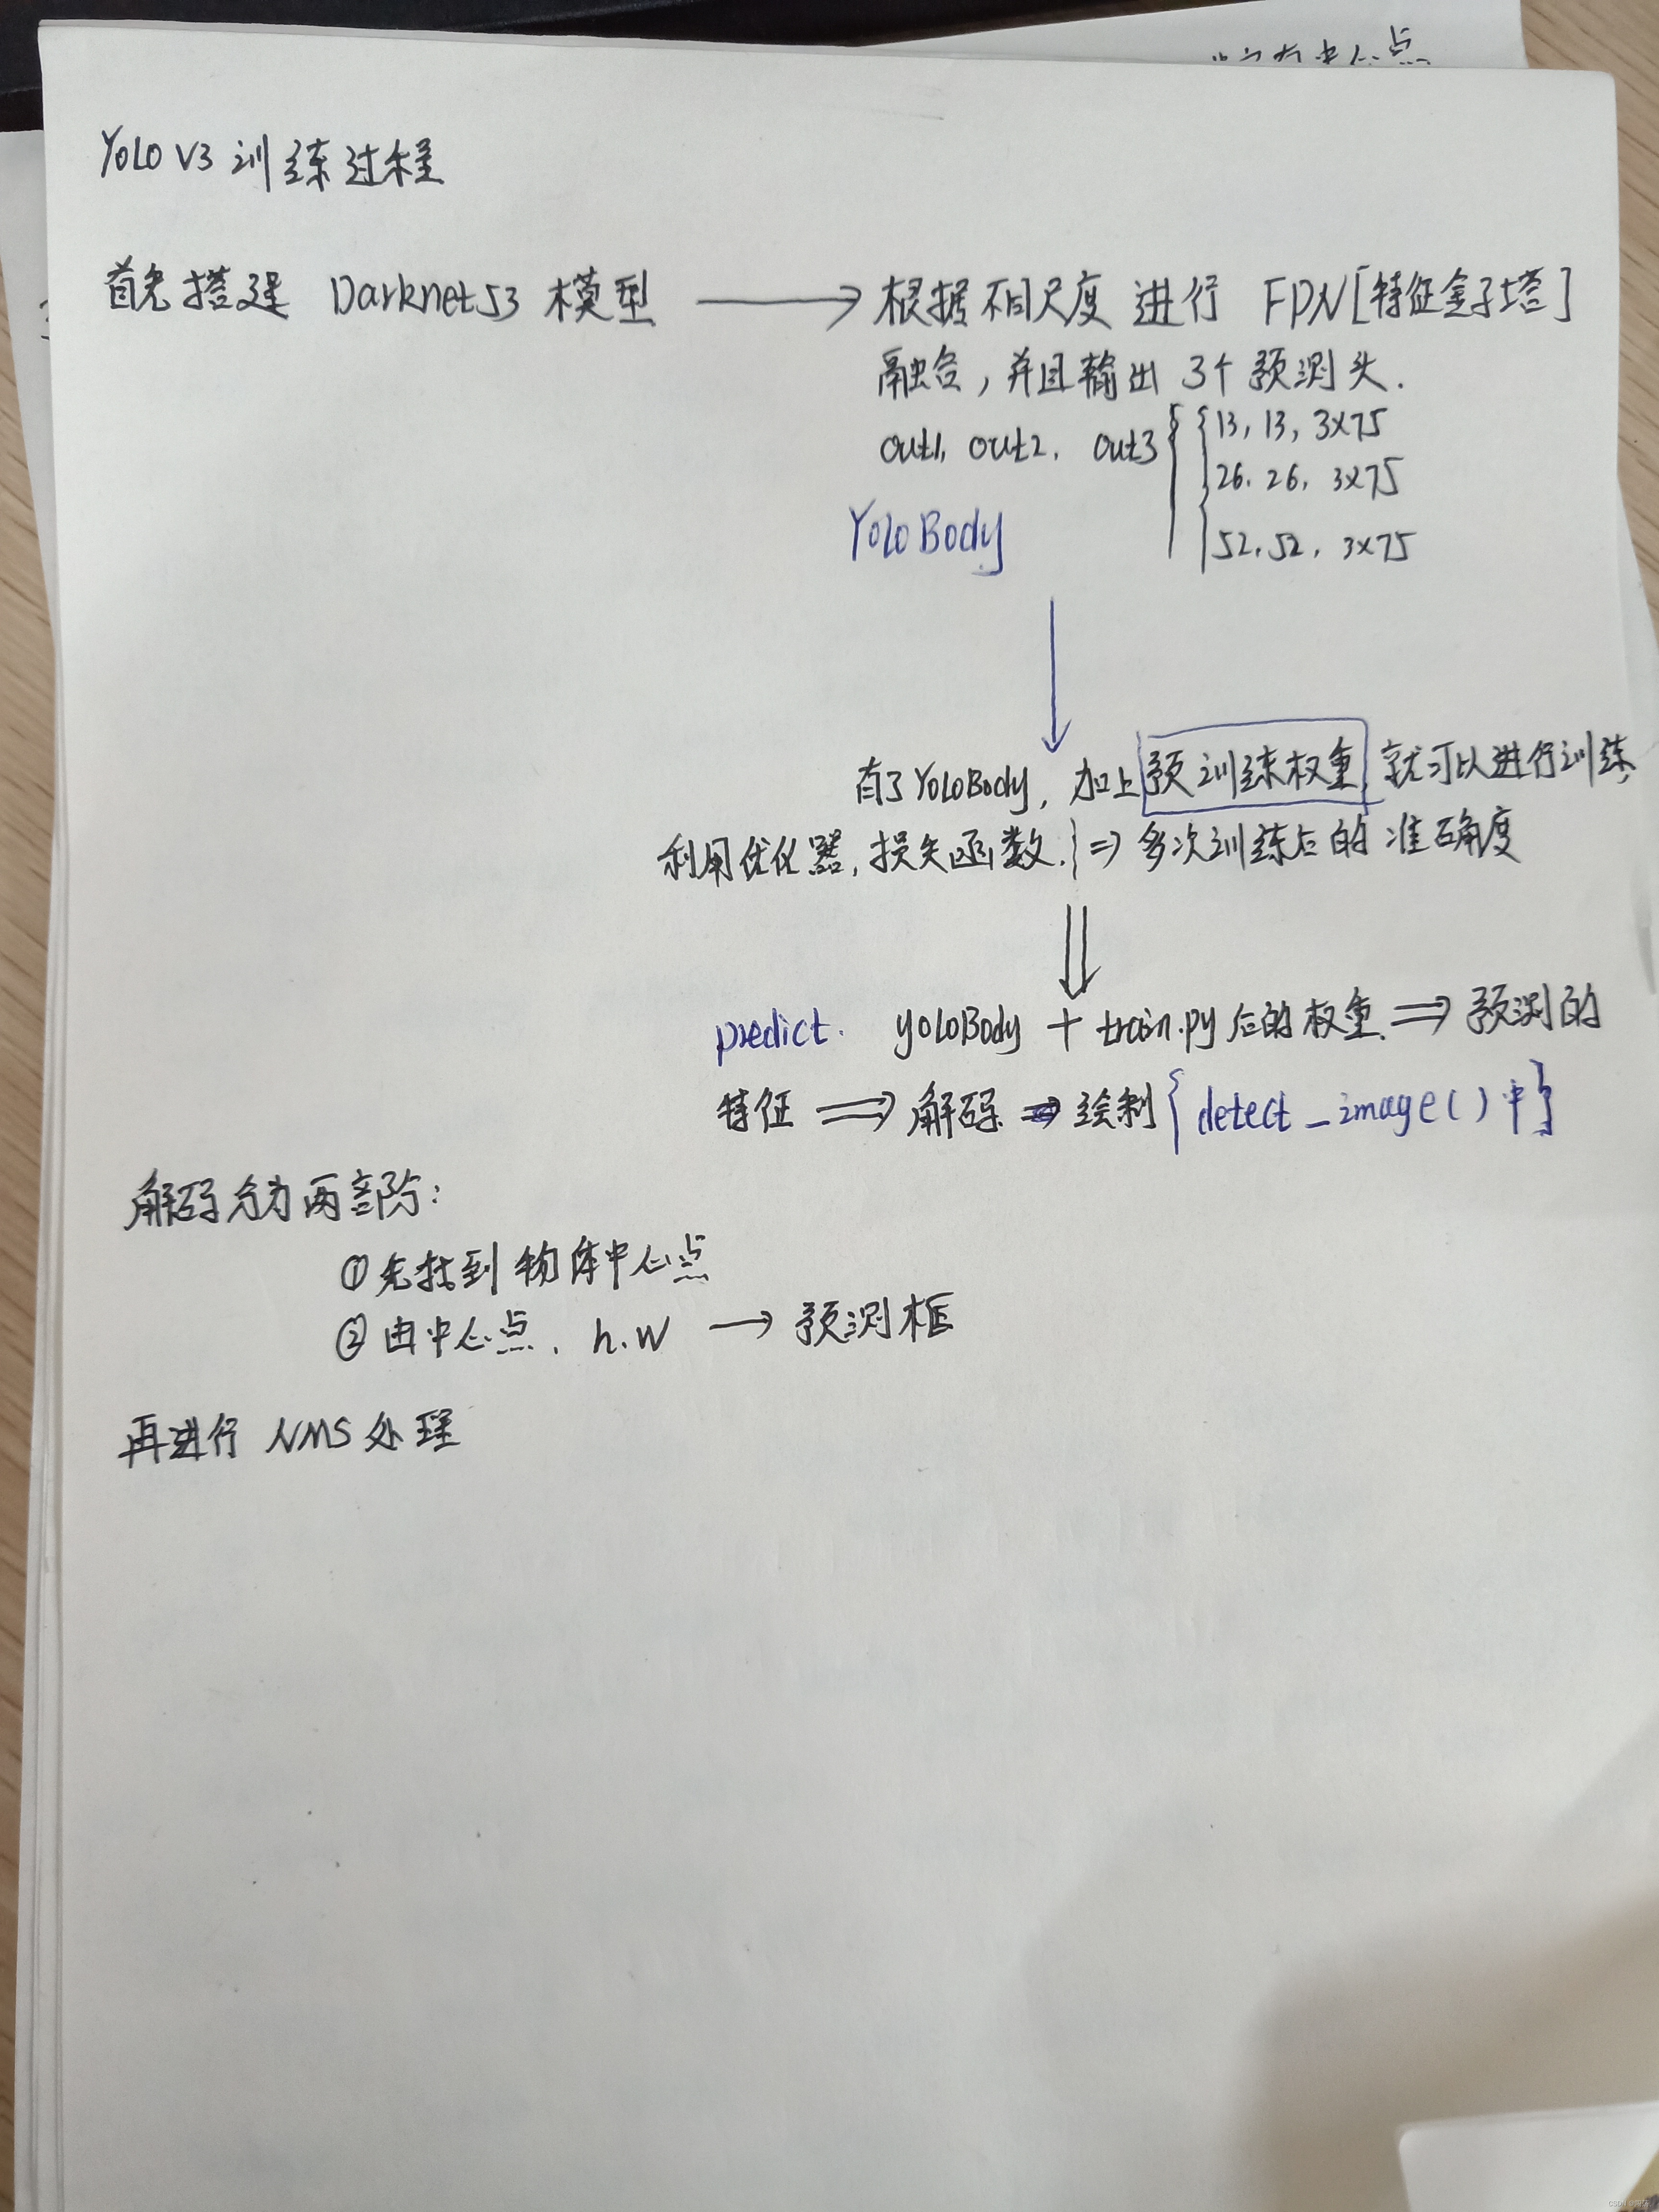 中心点
YOLO V3 训练过程
首先搭建 Darknet53 模型 ⟶ 根据不同尺度 进行 FPN[特征金子塔]
融合，并且输出 3个 预测头.
out1, out2, out3 { { 13, 13, 3×75
26, 26, 3×75
52, 52, 3×75
Yolo Body
有了YoloBody, 加上 预训练权重, 就可以进行训练,
利用优化器, 损失函数. } ⇒ 多次训练后的 准确度
predict. yoloBody + train.py后的权重. ⇒ 预测的
特征 ⇒ 解码 ⇒ 绘制 { detect_image()中 }
解码分为两部分:
① 先找到 物体中心点
② 由中心点, h.w → 预测框
再进行 NMS 处理